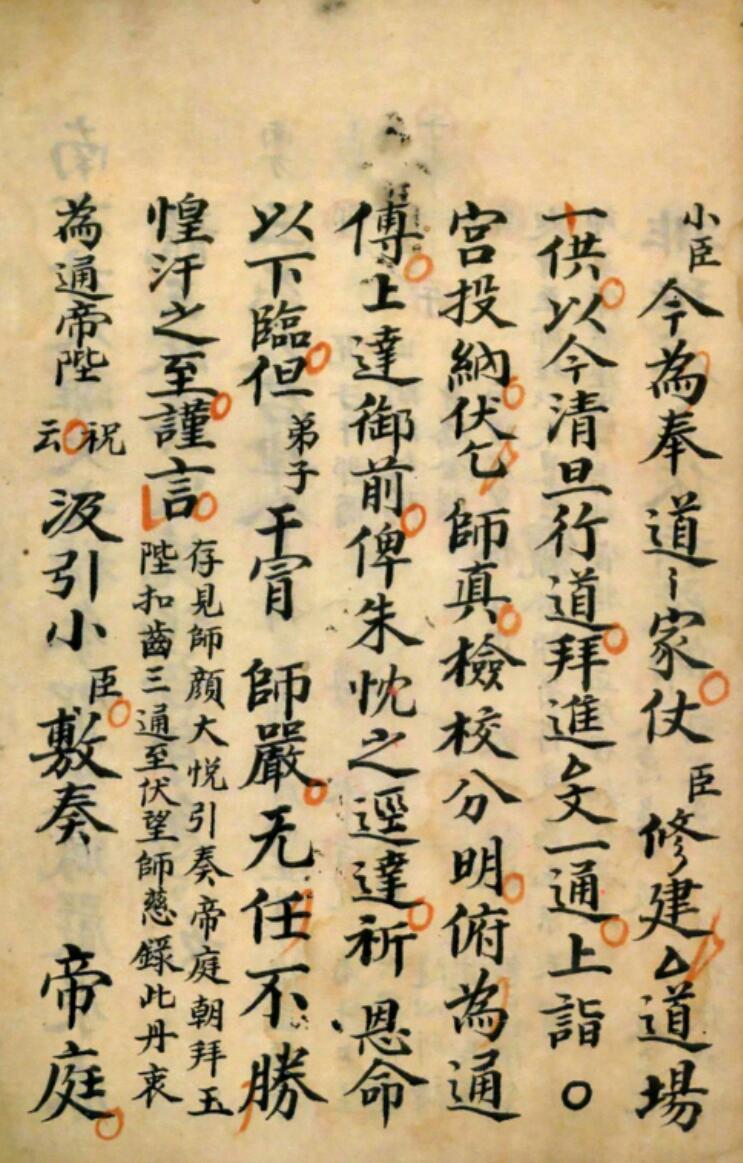 小臣今為奉道〻家仗臣修建厶道場
一供以今清旦行道拜進厶文一通上詣〇
宮投納伏乞師真檢校分明俯為通
傳上達御前俾朱忱之逕達祈恩命
以下臨但弟子干冒師嚴无任不勝
惶汗之至謹言存見師顏大悅引奏帝庭朝拜玉
陛扣齒三通至伏望師慈錄此丹衷
為通帝陛祝云汲引小臣敷奏帝庭